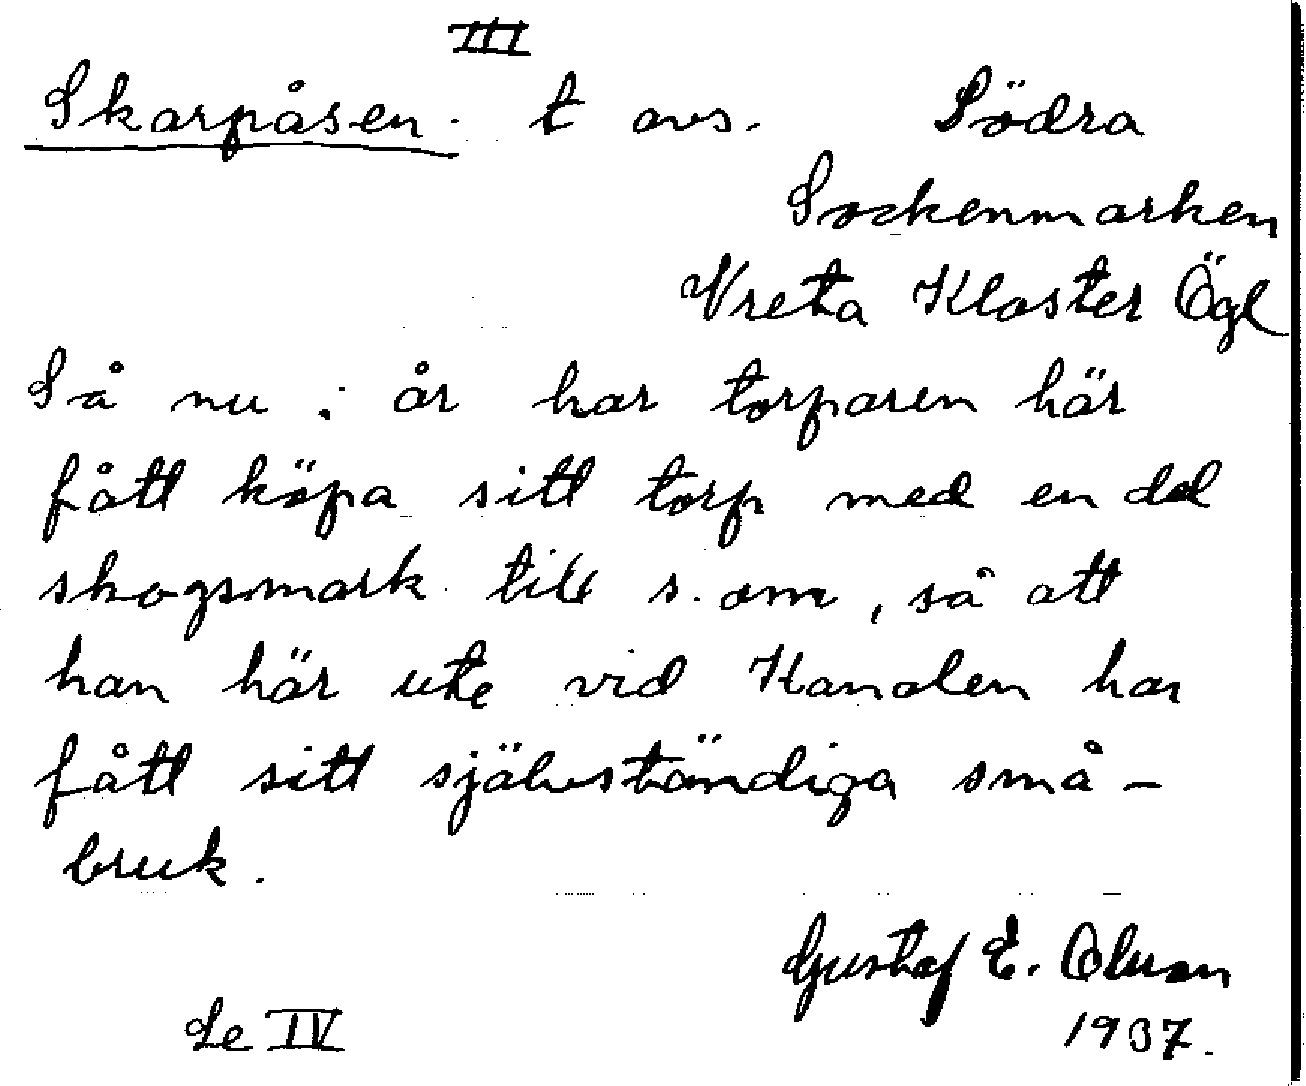 III
Skarpåsen. t avs. Södra
Sockenmarken
Vreta Kloster Ögl
Så nu i år har torparen här
fått köpa sitt torp med en del
skogsmark till s. om, så att
han här ute vid Kanalen har
fått sitt självständiga små-
bruk.
Gustaf E. Olsson
Se IV 1937.